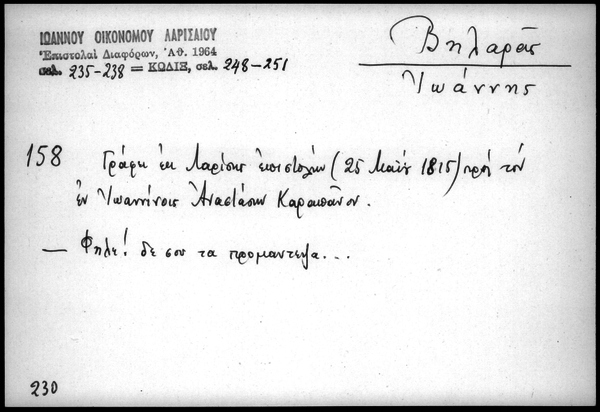 ΙΩΑΝΝΟΥ ΟΙΚΟΝΟΜΟΥ ΛΑΡΙΣΑΙΟΥ
Ἐπιστολαὶ Διαφόρων, Ἀθ. 1964
σελ. 235-238 = ΚΩΔΙΞ, σελ. 248-251
Βηλαρᾶς
Ἰωάννης
158 Γράφει ἐκ Λαρίσης ἐπιστολὴν (25 Μαΐου 1815) πρὸς τὸν
ἐν Ἰωαννίνοις Ἀναστάσην Καραπᾶνον.
— Φηλε! δε σου τα προμαντεψα...
230